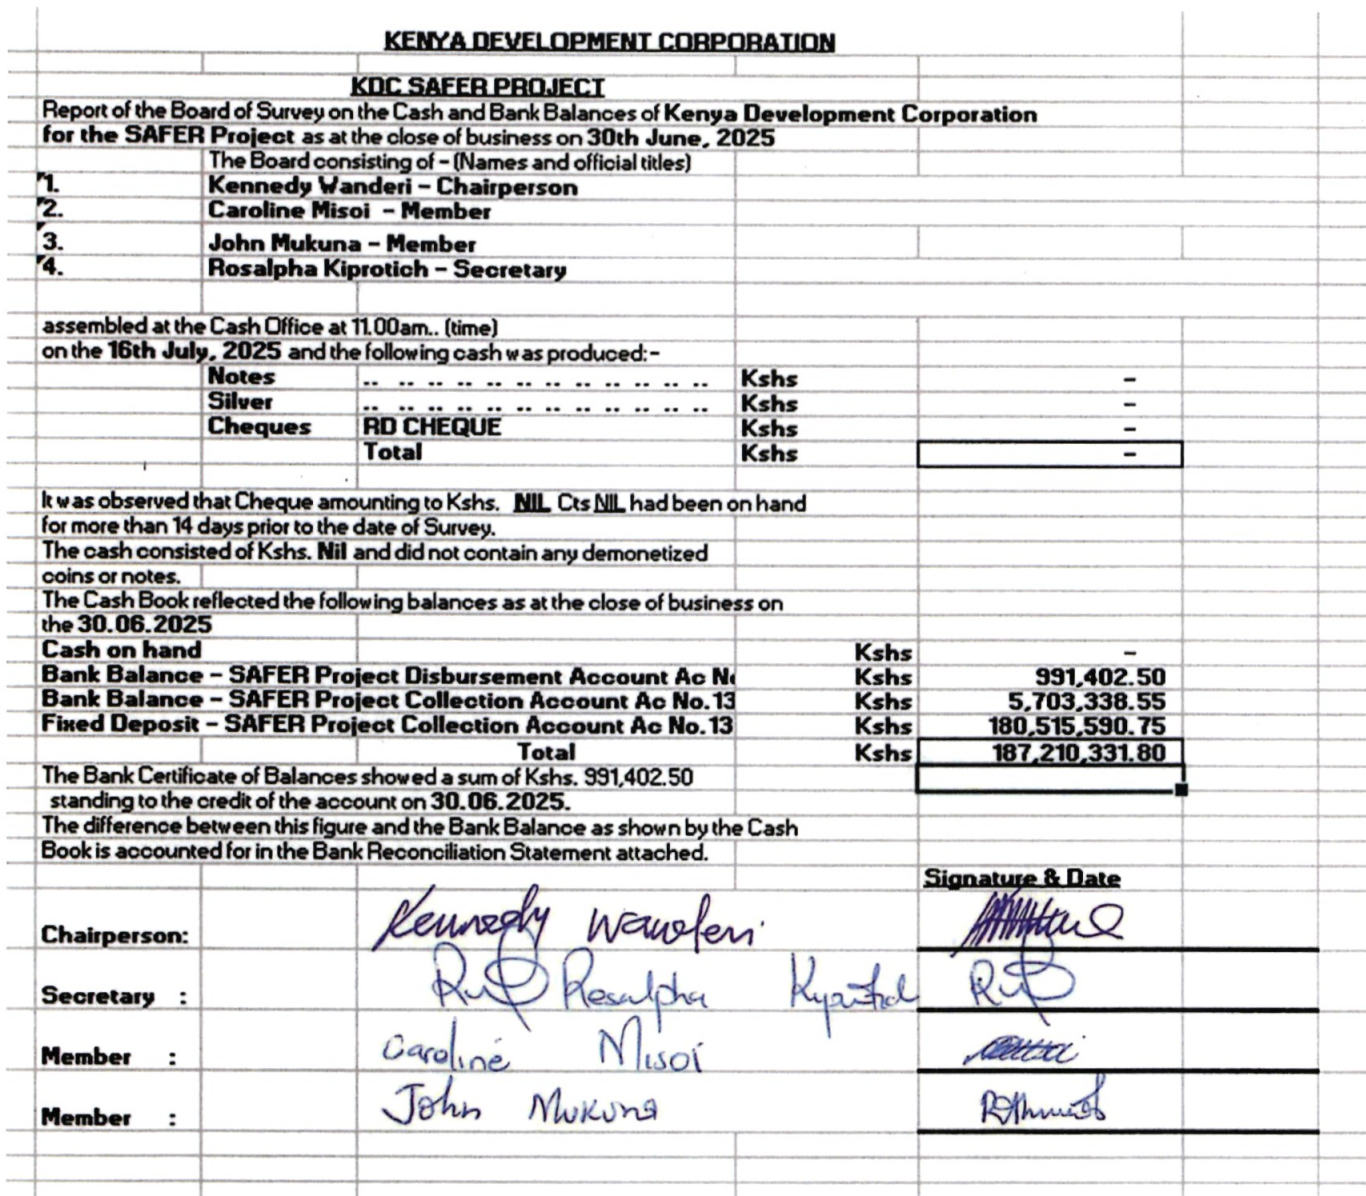 KENYA DEVELOPMENT CORPORATION
KDC SAFER PROJECT
Report of the Board of Survey on the Cash and Bank Balances of Kenya Development Corporation
for the SAFER Project as at the close of business on 30th June, 2025
The Board consisting of - (Names and official titles)
1. Kennedy Wanderi - Chairperson
2. Caroline Misoi - Member
3. John Mukuna - Member
4. Rosalpha Kiprotich - Secretary
assembled at the Cash Office at 11.00am.. (time)
on the 16th July, 2025 and the following cash was produced:-
Notes .. .. .. .. .. .. .. .. .. .. .. .. Kshs -
Silver .. .. .. .. .. .. .. .. .. .. .. .. Kshs -
Cheques RD CHEQUE Kshs -
Total Kshs -
It was observed that Cheque amounting to Kshs. NIL Cts NIL had been on hand
for more than 14 days prior to the date of Survey.
The cash consisted of Kshs. Nil and did not contain any demonetized
coins or notes.
The Cash Book reflected the following balances as at the close of business on
the 30.06.2025
Cash on hand Kshs -
Bank Balance - SAFER Project Disbursement Account Ac Kshs 991,402.50
Bank Balance - SAFER Project Collection Account Ac No.13 Kshs 5,703,338.55
Fixed Deposit - SAFER Project Collection Account Ac No.13 Kshs 180,515,590.75
Total Kshs 187,210,331.80
The Bank Certificate of Balances showed a sum of Kshs. 991,402.50
standing to the credit of the account on 30.06.2025.
The difference between this figure and the Bank Balance as shown by the Cash
Book is accounted for in the Bank Reconciliation Statement attached.
Signature & Date
Chairperson: Kennedy Wanderi
Secretary : Rosalpha
Member : Caroline Misoi
Member : John Mukuna